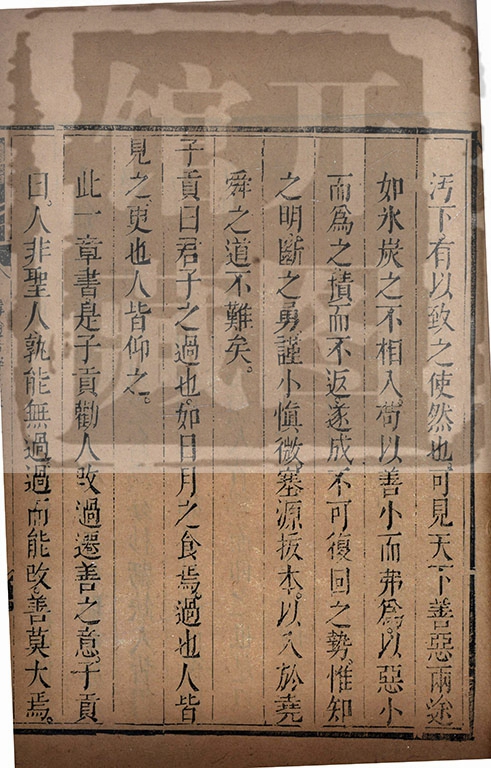 汚下有以致之使然也。可見天下善惡兩途
如氷炭之不相入。苟以善小而弗爲。以惡小
而爲之。積而不返。遂成不可復回之勢。惟知
之明。斷之勇。謹小愼微。塞源拔本。以入於堯
舜之道不難矣。
子貢曰。君子之過也。如日月之食焉。過也人皆
見之。更也人皆仰之。
此一章書是子貢勸人改過遷善之意。子貢
曰。人非聖人。孰能無過。過而能改。善莫大焉。